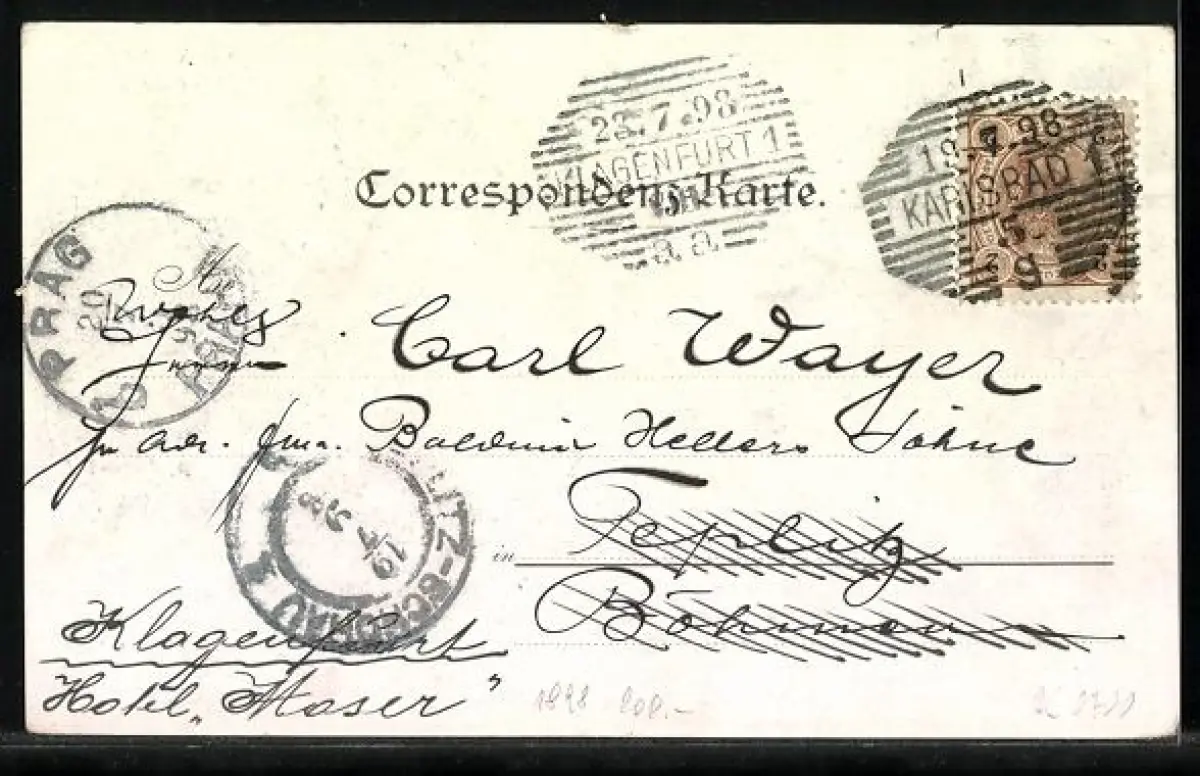 23.7.98
KLAGENFURT 1
19.7.98
KARLSBAD 1
9
Correspondenz-Karte.
PRAG
20
Carl Wayer
pr Adr. Fma. Balduin Hellers Söhne
in Teplitz
Böhmen
TEPLITZ-SCHÖNAU 1
19/7 98
Klagenfurt
Hotel „Moser"
1898 200.-